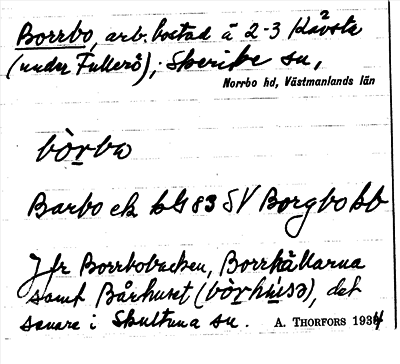 Borrbo, arb.bostad å 2-3 Kåvsta
(under Fullerö); Skerike sn,
Norrbo hd, Västmanlands län
bòrba
Barbo ek bG 83 SV Borgbo kb
Jfr Borrbobacken, Borrhållarna
samt Bårhuset (bòrhu̇sə), det
senare i Skultuna sn. A. THORFORS 1934